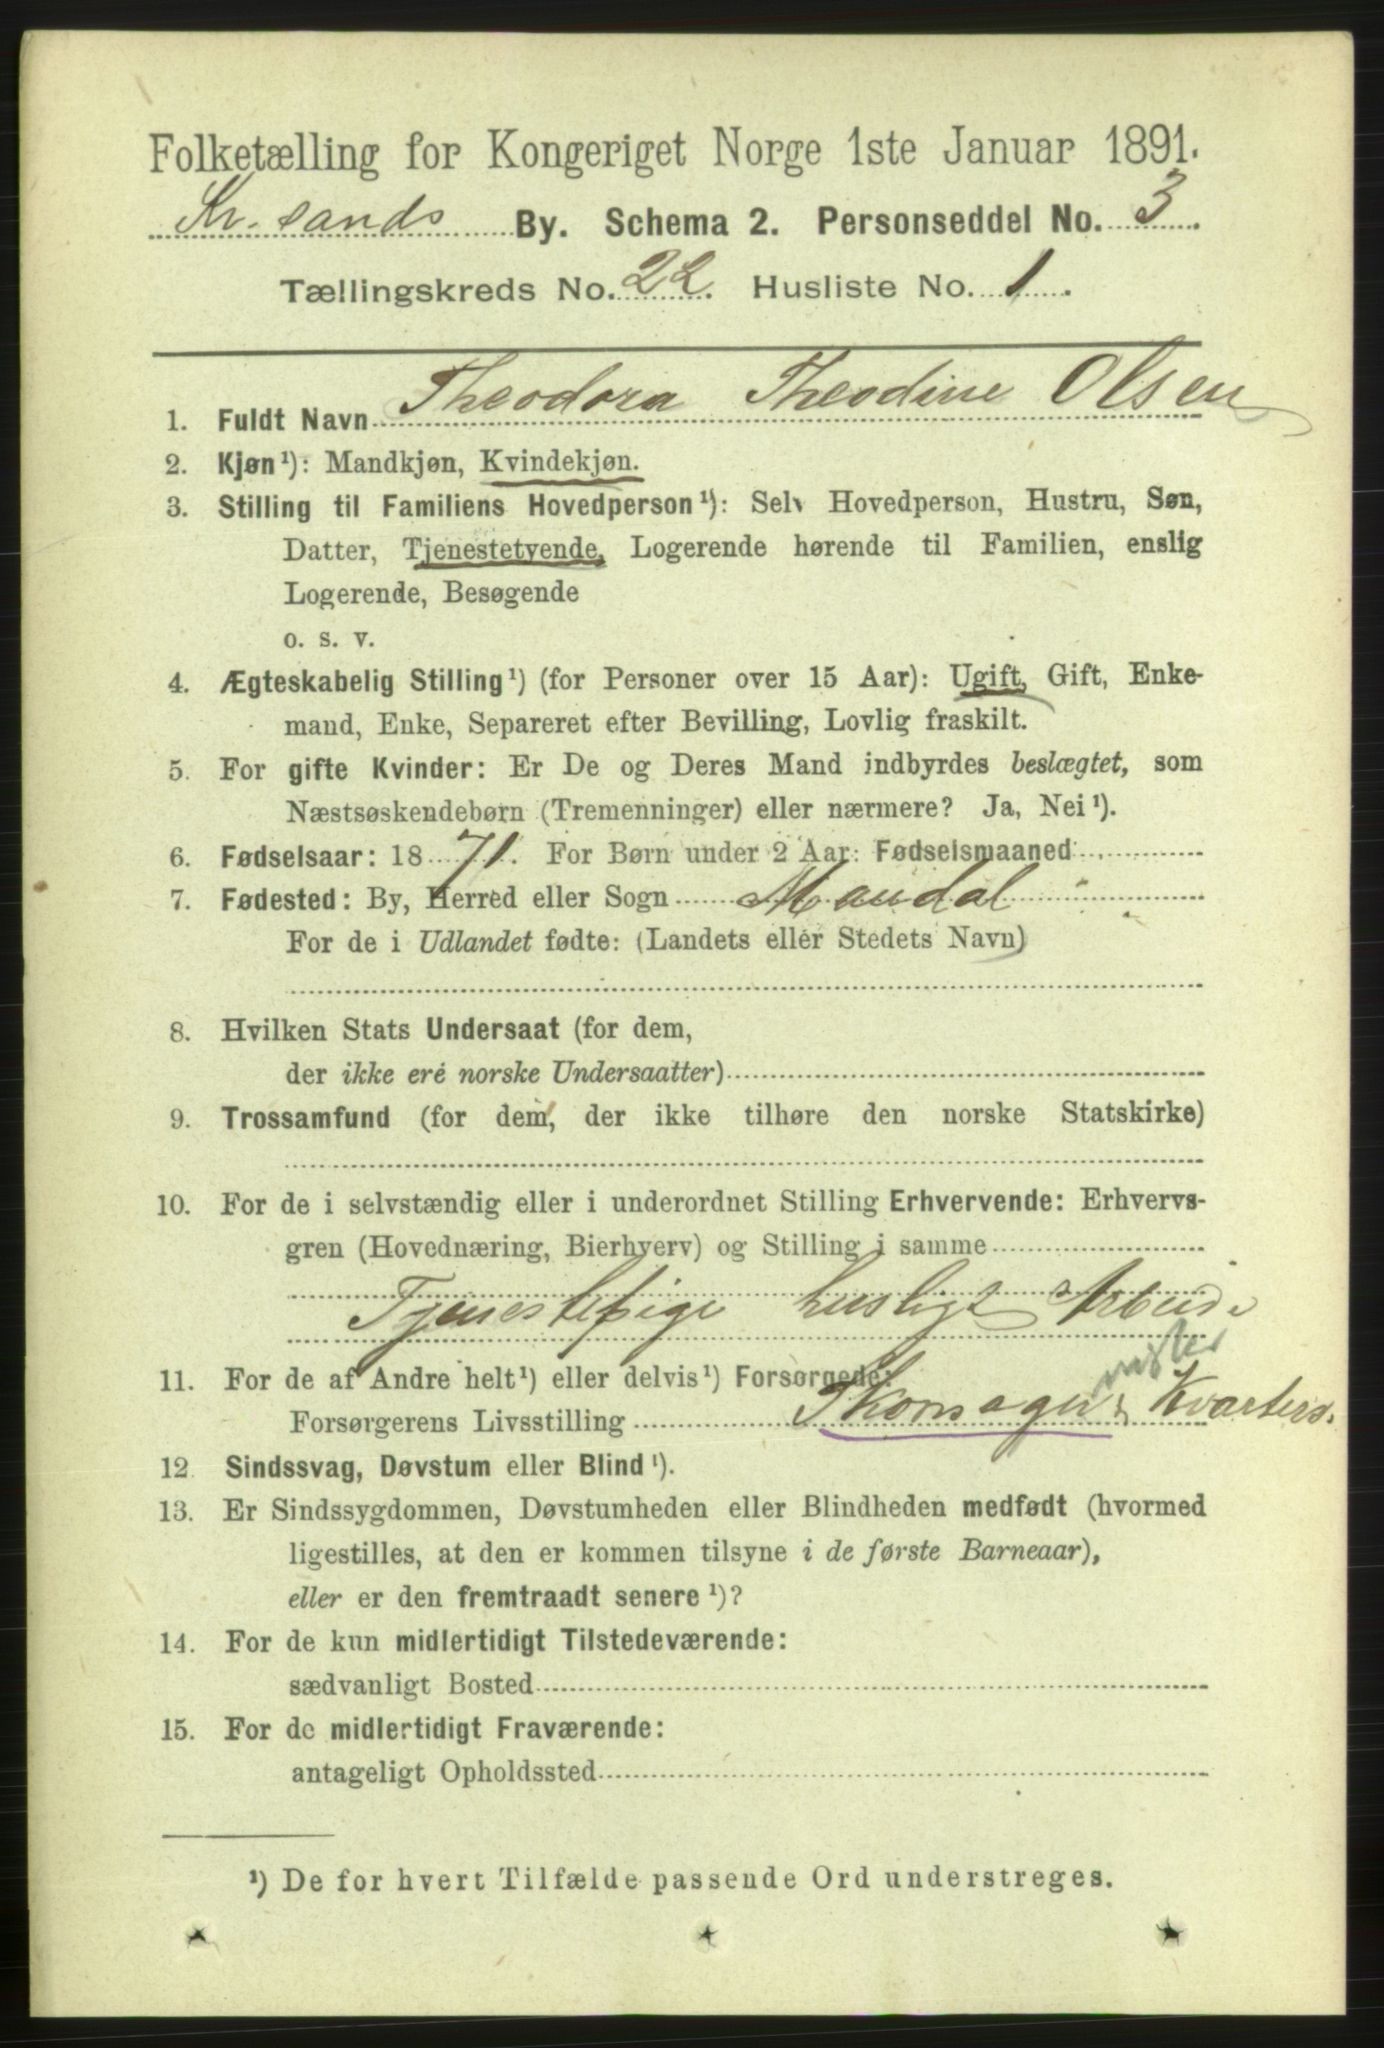 Folketælling for Kongeriget Norge 1ste Januar 1891.
Kr.sands By. Schema 2. Personseddel No. 3.
Tællingskreds No. 22. Husliste No. 1.
1. Fuldt Navn Theodora Theodine Olsen
2. Kjøn¹): Mandkjøn, Kvindekjøn.
3. Stilling til Familiens Hovedperson¹): Selv Hovedperson, Hustru, Søn,
Datter, Tjenestetyende, Logerende hørende til Familien, enslig
Logerende, Besøgende
o. s. v.
4. Ægteskabelig Stilling¹) (for Personer over 15 Aar): Ugift, Gift, Enke-
mand, Enke, Separeret efter Bevilling, Lovlig fraskilt.
5. For gifte Kvinder: Er De og Deres Mand indbyrdes beslægtet, som
Næstsøskendebørn (Tremenninger) eller nærmere? Ja, Nei¹).
6. Fødselsaar: 1871. For Børn under 2 Aar: Fødselsmaaned
7. Fødested: By, Herred eller Sogn Mandal
For de i Udlandet fødte: (Landets eller Stedets Navn)
8. Hvilken Stats Undersaat (for dem,
der ikke ere norske Undersaatter)
9. Trossamfund (for dem, der ikke tilhøre den norske Statskirke)
10. For de i selvstændig eller i underordnet Stilling Erhvervende: Erhvervs-
gren (Hovednæring, Bierhverv) og Stilling i samme
Tjenestepige husligt Arbeide
11. For de af Andre helt¹) eller delvis¹) Forsørgede:
Forsørgerens Livsstilling Kvarters.
12. Sindssvag, Døvstum eller Blind¹).
13. Er Sindssygdommen, Døvstumheden eller Blindheden medfødt (hvormed
ligestilles, at den er kommen tilsyne i de første Barneaar),
eller er den fremtraadt senere¹)?
14. For de kun midlertidigt Tilstedeværende:
sædvanligt Bosted
15. For de midlertidigt Fraværende:
antageligt Opholdssted
¹) De for hvert Tilfælde passende Ord understreges.